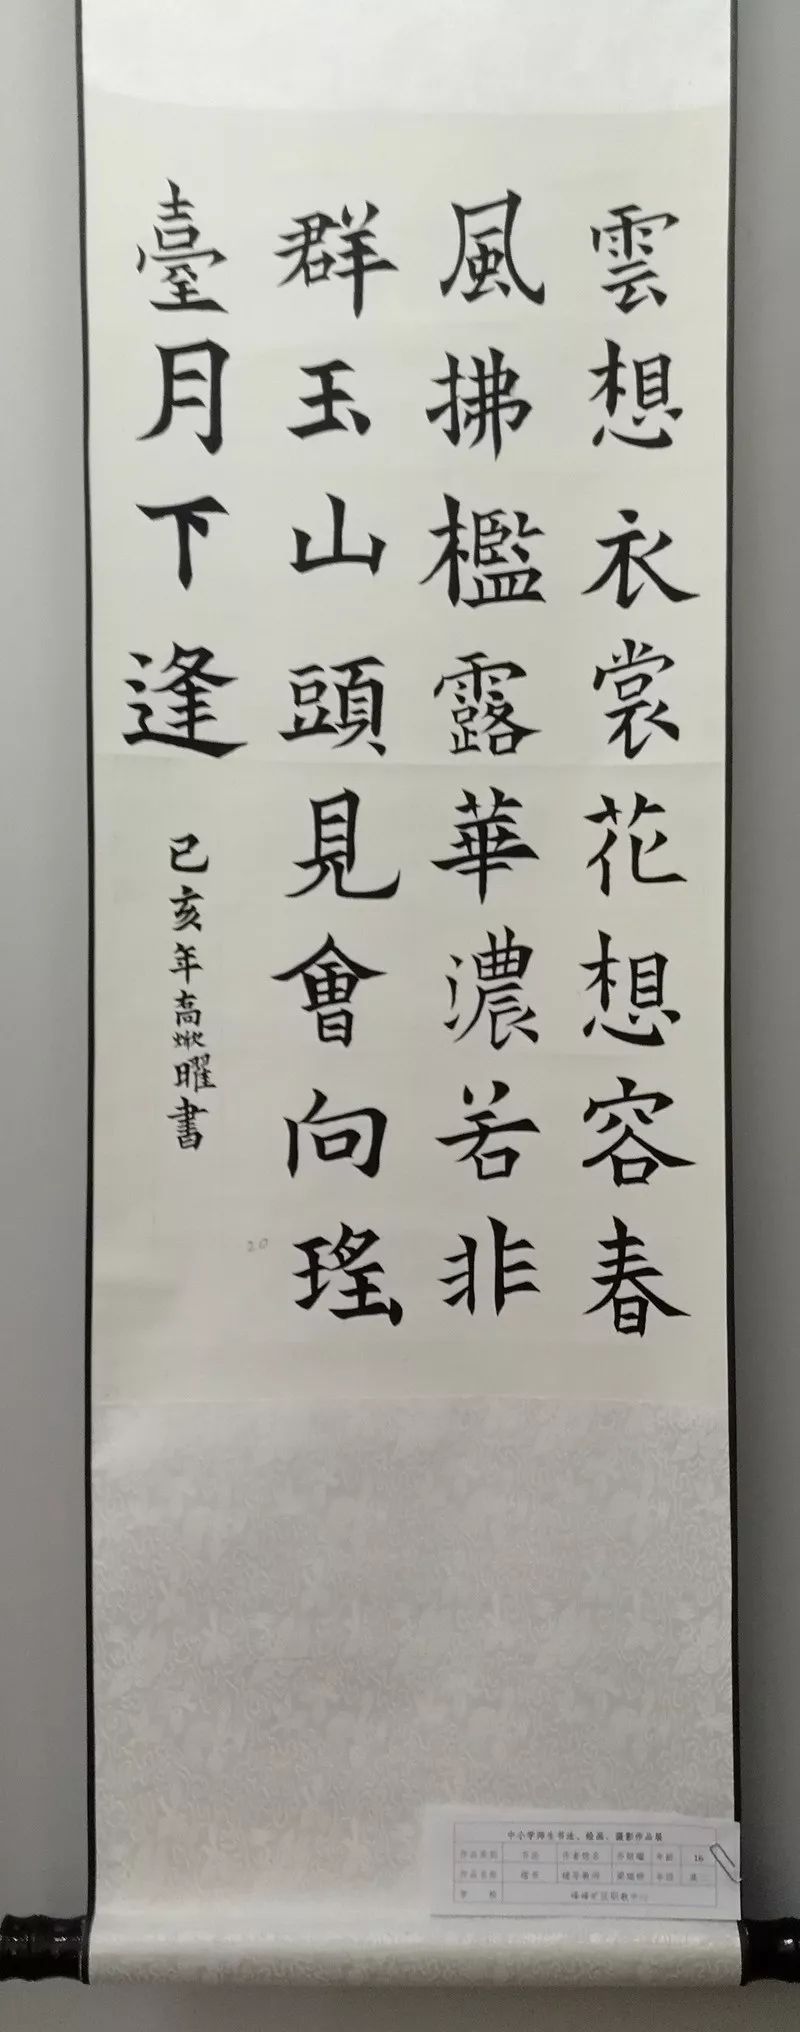 雲想衣裳花想容春
風拂檻露華濃若非
群玉山頭見會向瑤
臺月下逢
己亥年高焮曜書
20
中小学师生书法、绘画、摄影作品展
作品类别 书法 作者姓名 年龄 16
作品名称 楷书 辅导教师 年级 高二
学校 峰峰矿区职教中心